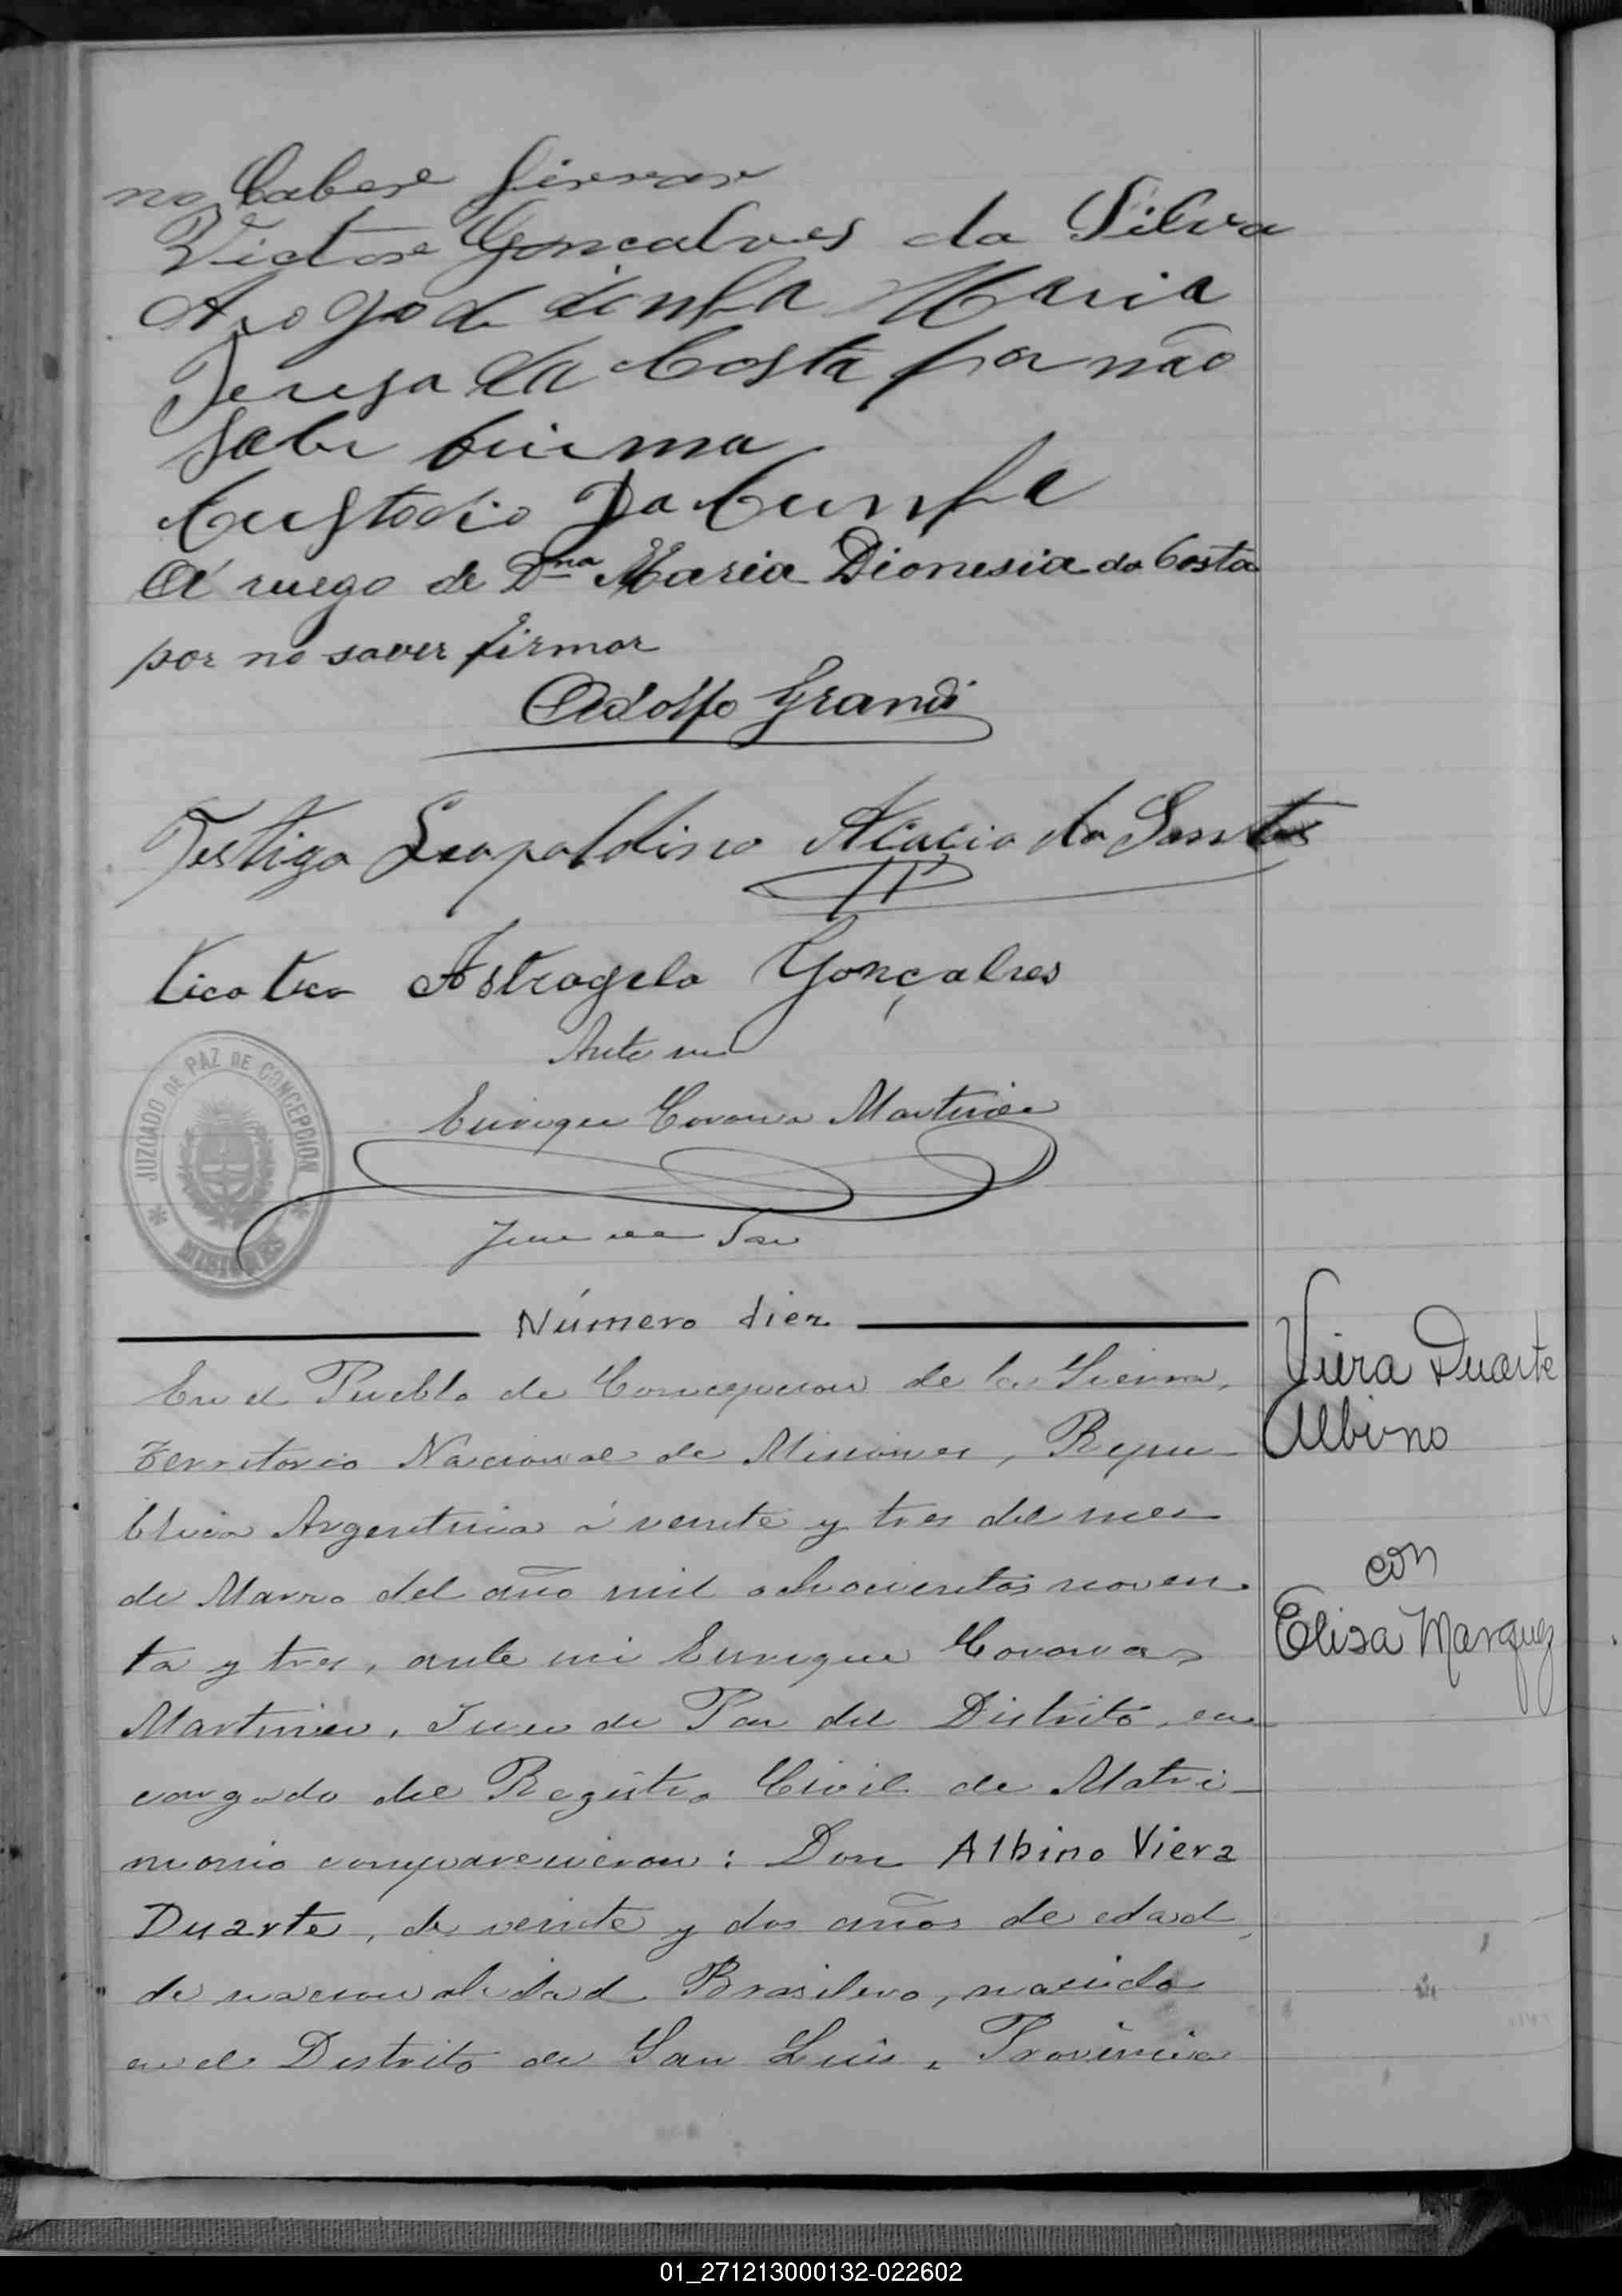 no Saber firmar
Victor Gonçalves da Silva
A rogo de dinha Maria
Teresa da Costa por não
saber firma
Custodio Da Cunha
A' ruego de Dna Maria Dionesia da Costa
por no saver firmar
Adolfo Grandi
Testigo Leopoldino Acacio do Santos
Astrogelo Gonçalves
Ante mi
Enrique Covarra Martinez
Juez de Paz
JUZGADO DE PAZ DE CONCEPCION
MISIONES
Número diez
En el Pueblo de Concepcion de la Sierra,
Viera Duarte
Territorio Nacional de Misiones, Repu-
Albino
blica Argentina á veinte y tres del mes
de Marzo del año mil ochocientos noven-
con
ta y tres, ante mi Enrique Covarras
Elisa Marquez
Martinez, Juez de Paz del Distrito, en-
cargado del Registro Civil de Matri-
monio comparecieron: Don Albino Viera
Duarte, de veinte y dos años de edad,
de nacionalidad Brasilero, nacido
en el Distrito de San Luis, Provincia
01_271213000132-022602